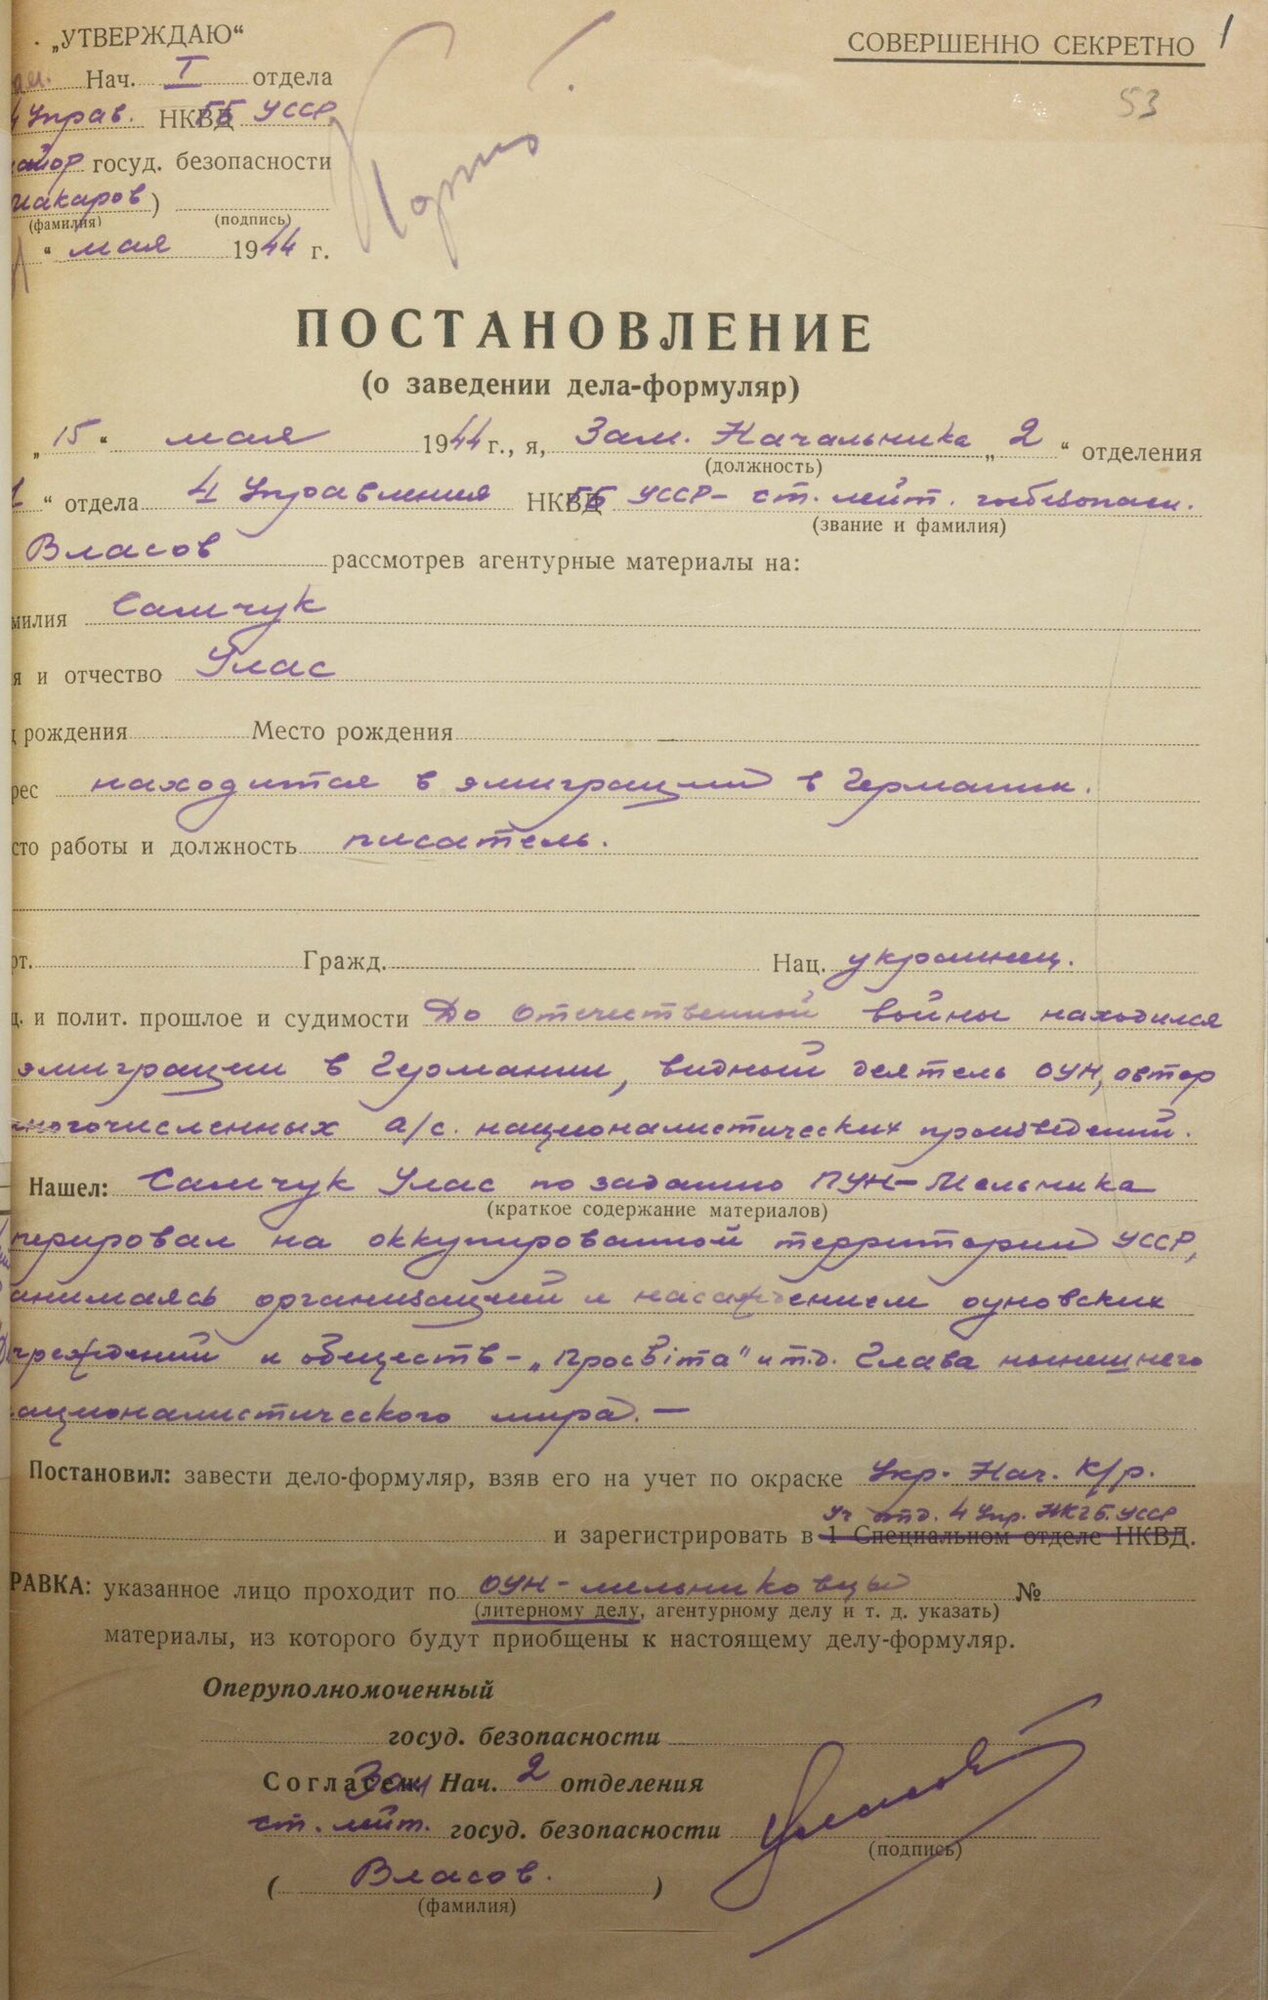 СОВЕРШЕННО СЕКРЕТНО
1
53
„УТВЕРЖДАЮ“
Нач. I отдела
4 Управ. НКГБ УССР
майор госуд. безопасности
Макаров)
(фамилия) (подпись)
“ мая 1944 г.
ПОСТАНОВЛЕНИЕ
(о заведении дела-формуляр)
„15“ мая 1944 г., я, Зам. Начальника „2“ отделения
(должность)
1“ отдела 4 Управления НКГБ УССР – ст. лейт. госбезопасн.
(звание и фамилия)
Власов рассмотрев агентурные материалы на:
милия Самчук
я и отчество Улас
рождения Место рождения —
рес находится в эмиграции в Германии.
сто работы и должность писатель.
рт. Гражд. Нац. украинец.
ц. и полит. прошлое и судимости До Отечественной войны находился
эмиграции в Германии, видный деятель ОУН, автор
многочисленных а/с. националистических произведений.
Нашел: Самчук Улас по заданию ПУН – Мельника
(краткое содержание материалов)
оперировал на оккупированной территории УССР,
занимаясь организацией и насаждением оуновских
учреждений и обществ – „Просвіта“ и т.д. Глава нынешнего
националистического мира. —
Постановил: завести дело-формуляр, взяв его на учет по окраске Укр. Нац. к/р.
Уч отд. 4 Упр. НКГБ. УССР
и зарегистрировать в 1 Специальном отделе НКВД.
РАВКА: указанное лицо проходит по ОУН – мельниковцы №
(литерному делу, агентурному делу и т. д. указать)
материалы, из которого будут приобщены к настоящему делу-формуляр.
Оперуполномоченный
госуд. безопасности
Согласен: Зам Нач. 2 отделения
ст. лейт. госуд. безопасности Власов
(подпись)
( Власов. )
(фамилия)